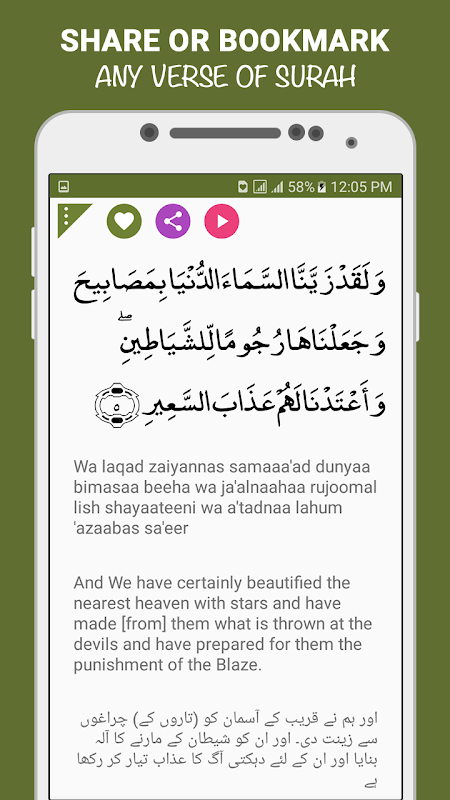 SHARE OR BOOKMARK
ANY VERSE OF SURAH
58% 12:05 PM
وَلَقَدْ زَيَّنَّا السَّمَاءَ الدُّنْيَا بِمَصَابِيحَ
وَجَعَلْنَاهَا رُجُومًا لِّلشَّيَاطِينِ ۖ
وَأَعْتَدْنَا لَهُمْ عَذَابَ السَّعِيرِ ٥
Wa laqad zaiyannas samaaa'ad dunyaa
bimasaa beeha wa ja'alnaahaa rujoomal
lish shayaateeni wa a'tadnaa lahum
'azaabas sa'eer
And We have certainly beautified the
nearest heaven with stars and have
made [from] them what is thrown at the
devils and have prepared for them the
punishment of the Blaze.
اور ہم نے قریب کے آسمان کو (تاروں کے) چراغوں
سے زینت دی۔ اور ان کو شیطان کے مارنے کا آلہ
بنایا اور ان کے لئے دہکتی آگ کا عذاب تیار کر رکھا
ہے